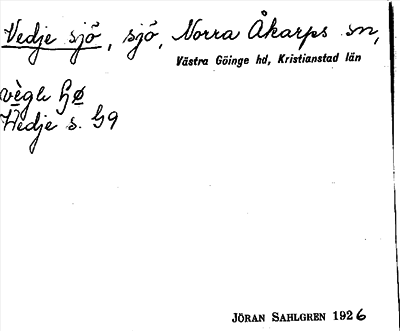 Vedje sjö, sjö, Norra Åkarps sn,
Västra Göinge hd, Kristianstad län
Wedje s. G9
JÖRAN SAHLGREN 1926